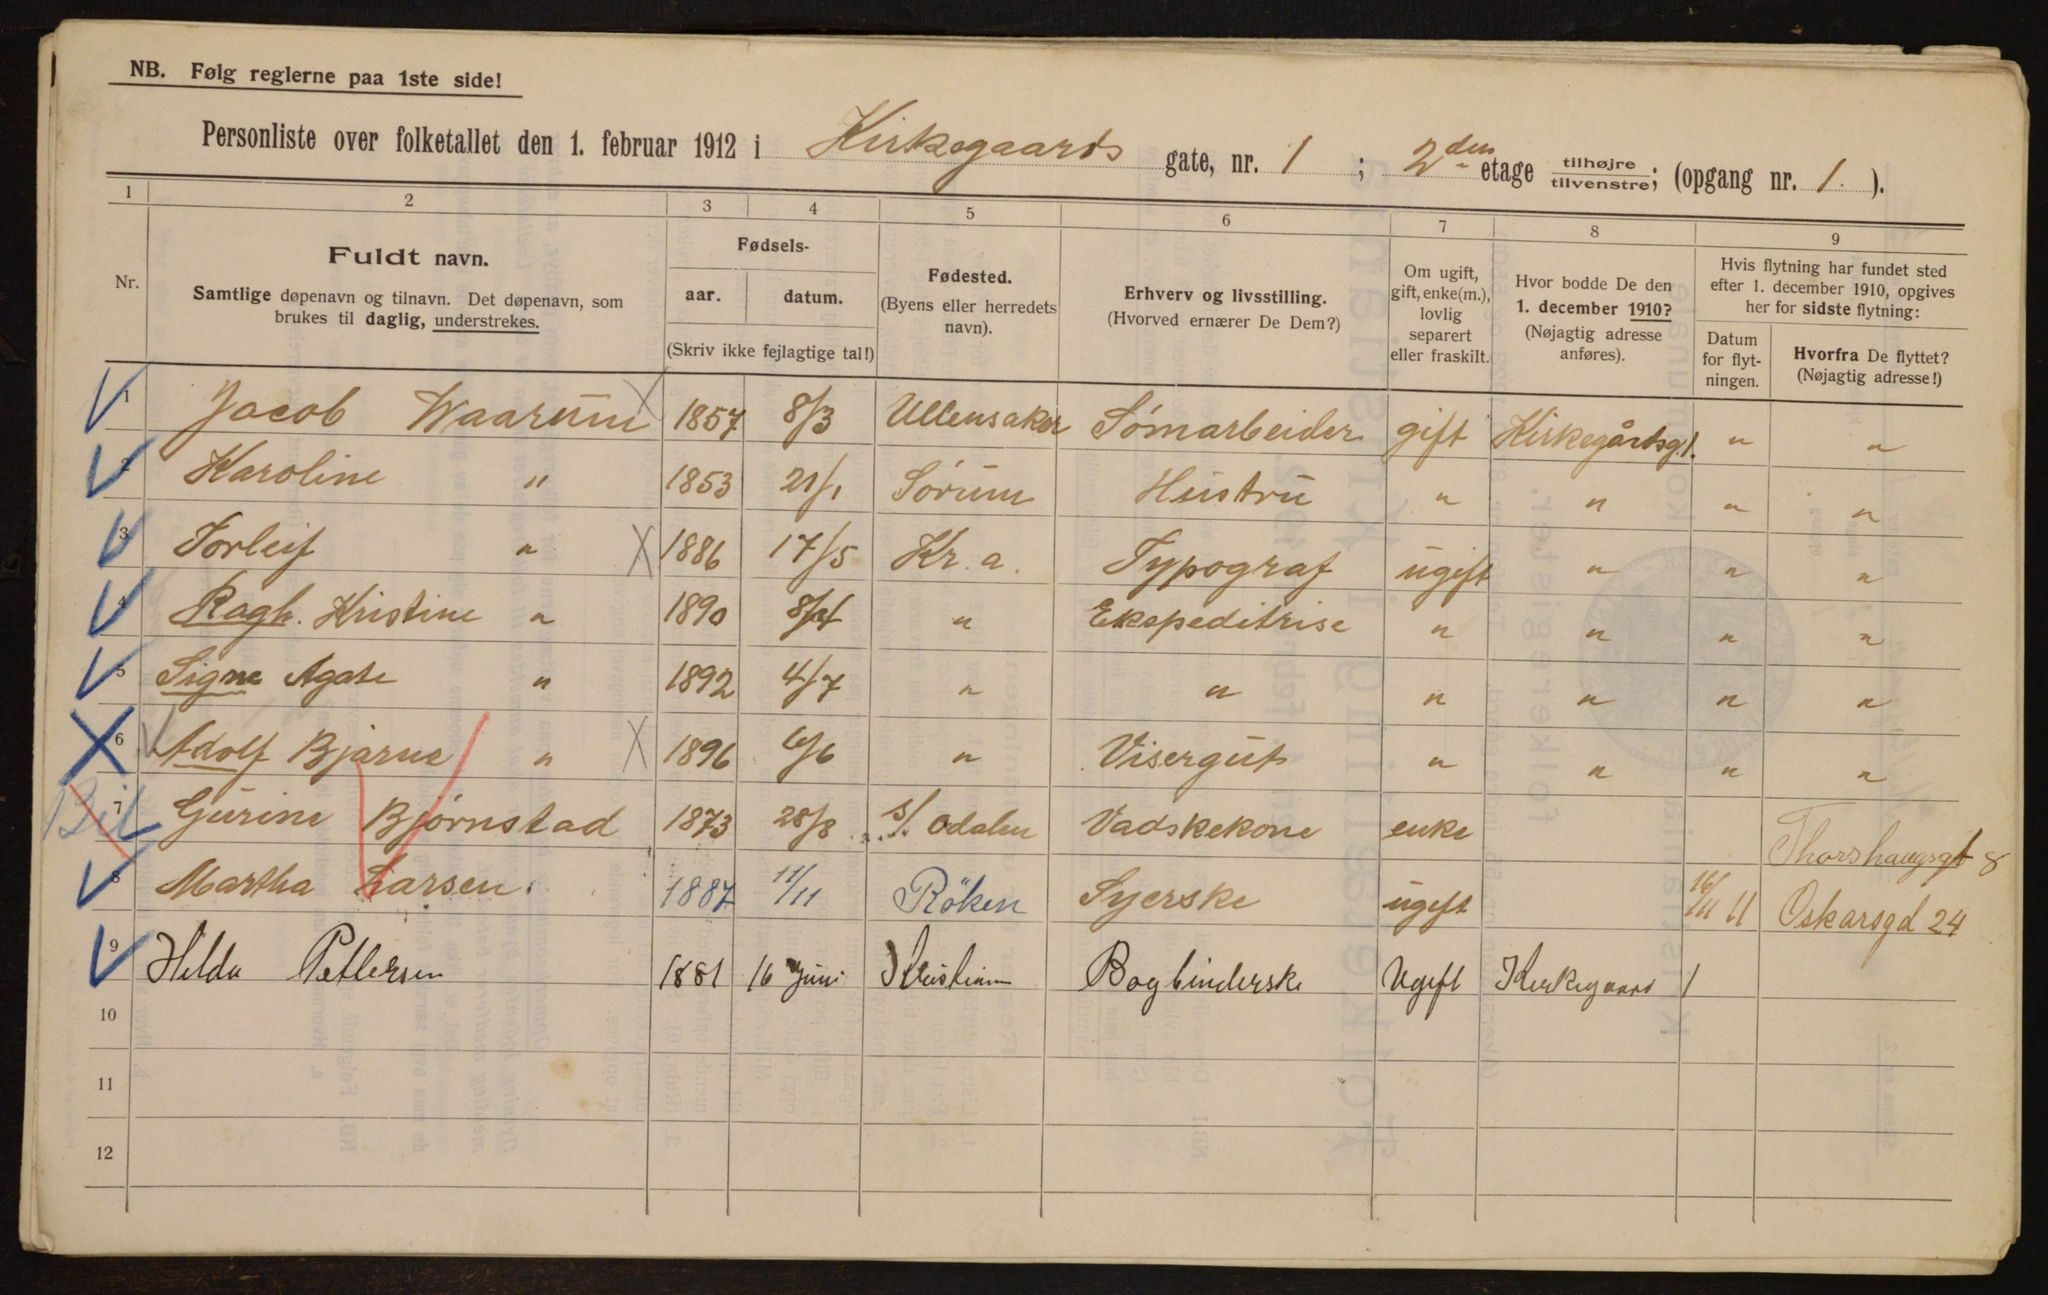 NB. Følg reglerne paa 1ste side!
Personliste over folketallet den 1. februar 1912 i Kirkegaards gate, nr. 1 ; 2den etage tilhøjre tilvenstre; (opgang nr. 1. ).
1 2 3 4 5 6 7 8 9
Nr.
Fuldt navn.
Samtlige døpenavn og tilnavn. Det døpenavn, som
brukes til daglig, understrekes.
Fødsels-
aar. datum.
(Skriv ikke fejlagtige tal!)
Fødested.
(Byens eller herredets
navn).
Erhverv og livsstilling.
(Hvorved ernærer De Dem?)
Om ugift,
gift, enke(m.),
lovlig
separert
eller fraskilt.
Hvor bodde De den
1. december 1910?
(Nøjagtig adresse
anføres).
Hvis flytning har fundet sted
efter 1. december 1910, opgives
her for sidste flytning:
Datum
for flyt-
ningen.
Hvorfra De flyttet?
(Nøjagtig adresse!)
1 Jacob Waarum 1857 8/3 Ullensaker Sømarbeider gift Kirkegårdsg. 1. " "
2 Karoline " 1853 21/1 Sørum Hustru " " " "
3 Torleif " 1886 17/5 Kr. a. Typograf ugift " " "
4 Ragh. Kristine " 1890 " Ekspeditrise " " " "
5 Signe Agate " 1892 4/7 " " " " " "
6 Adolf Bjarne " 1896 6/6 " Visergut " " " "
7 Gurine Bjørnstad 1873 28/8 s/. Odalen Vadskekone enke Thorshaugsgt 8
8 Martha Larsen. 1887 11/11 Röken Syerske ugift 16/11 11 Oskarsgd 24
9 Hilda Pettersen 1881 16 juni Kristiania Bogbinderske Ugift Kirkegaard 1
10
11
12